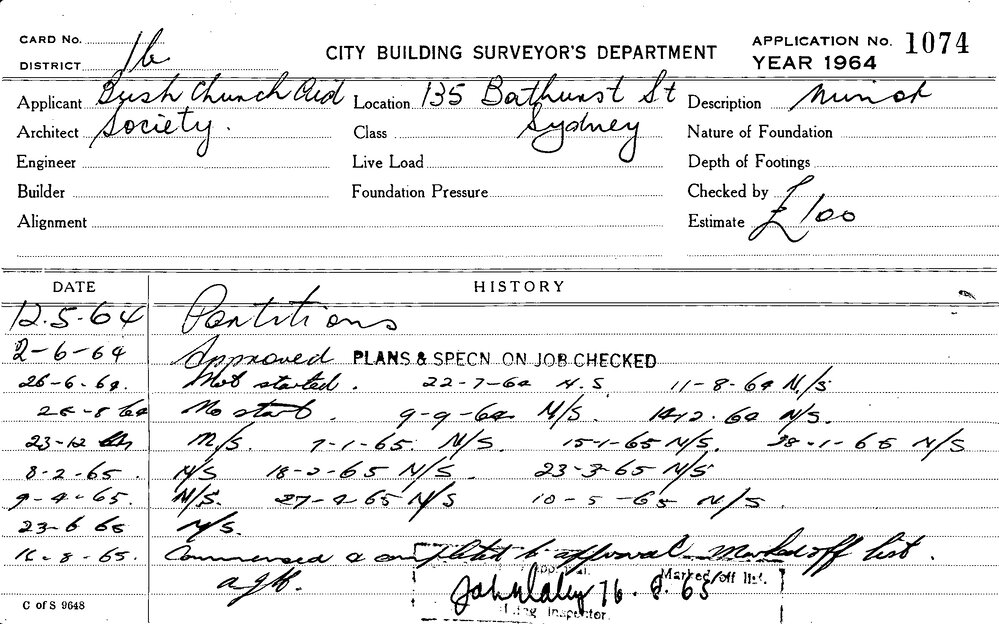 CARD No. 16
CITY BUILDING SURVEYOR'S DEPARTMENT
APPLICATION No. 1074
DISTRICT
YEAR 1964
Applicant Bush Church Aid Location 135 Bathurst St Description Minor
Architect Society. Class Sydney Nature of Foundation
Engineer Live Load Depth of Footings
Builder Foundation Pressure Checked by
Alignment Estimate £100
DATE HISTORY
12.5-64 Partitions
2-6-64 Approved PLANS & SPECN ON JOB CHECKED
26-6-64. Not started. 22-7-64 N.S 11-8-64 N/S
26-8-64 No start. 9-9-64 N/S. 14-12-64 N/S.
23-12-64 N/S. 7-1-65. N/S. 15-1-65 N/S. 28-1-65 N/S
8-2-65. N/S 18-2-65 N/S. 23-3-65 N/S
9-4-65. N/S. 27-4-65 N/S 10-5-65 N/S.
23-6-65 N/S.
16-8-65. Commenced & completed to approval. Marked off list.
Marked off list.
16.8.65
Inspector.
C of S 9648